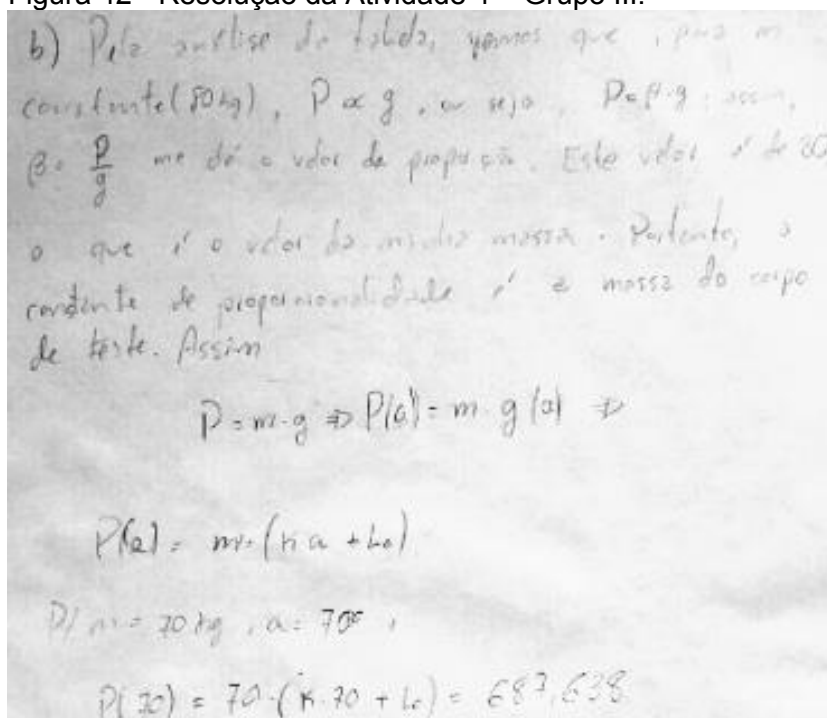 Figura 42 - Resolução da Atividade 4 – Grupo III.
b) Pela análise da tabela, vemos que, para m
constante (80kg), P ∝ g, ou seja, P=β·g; assim,
β= P/g me dá o valor da proporção. Este valor é de 80
o que é o valor da minha massa. Portanto, a
constante de proporcionalidade é a massa do corpo
de teste. Assim
P = m·g ⇒ P(a) = m·g(a) ⇒
P(a) = m·(K a + L₀)
P/ m = 70 kg, a = 70°,
P(70) = 70·(K·70 + L₀) = 687,638